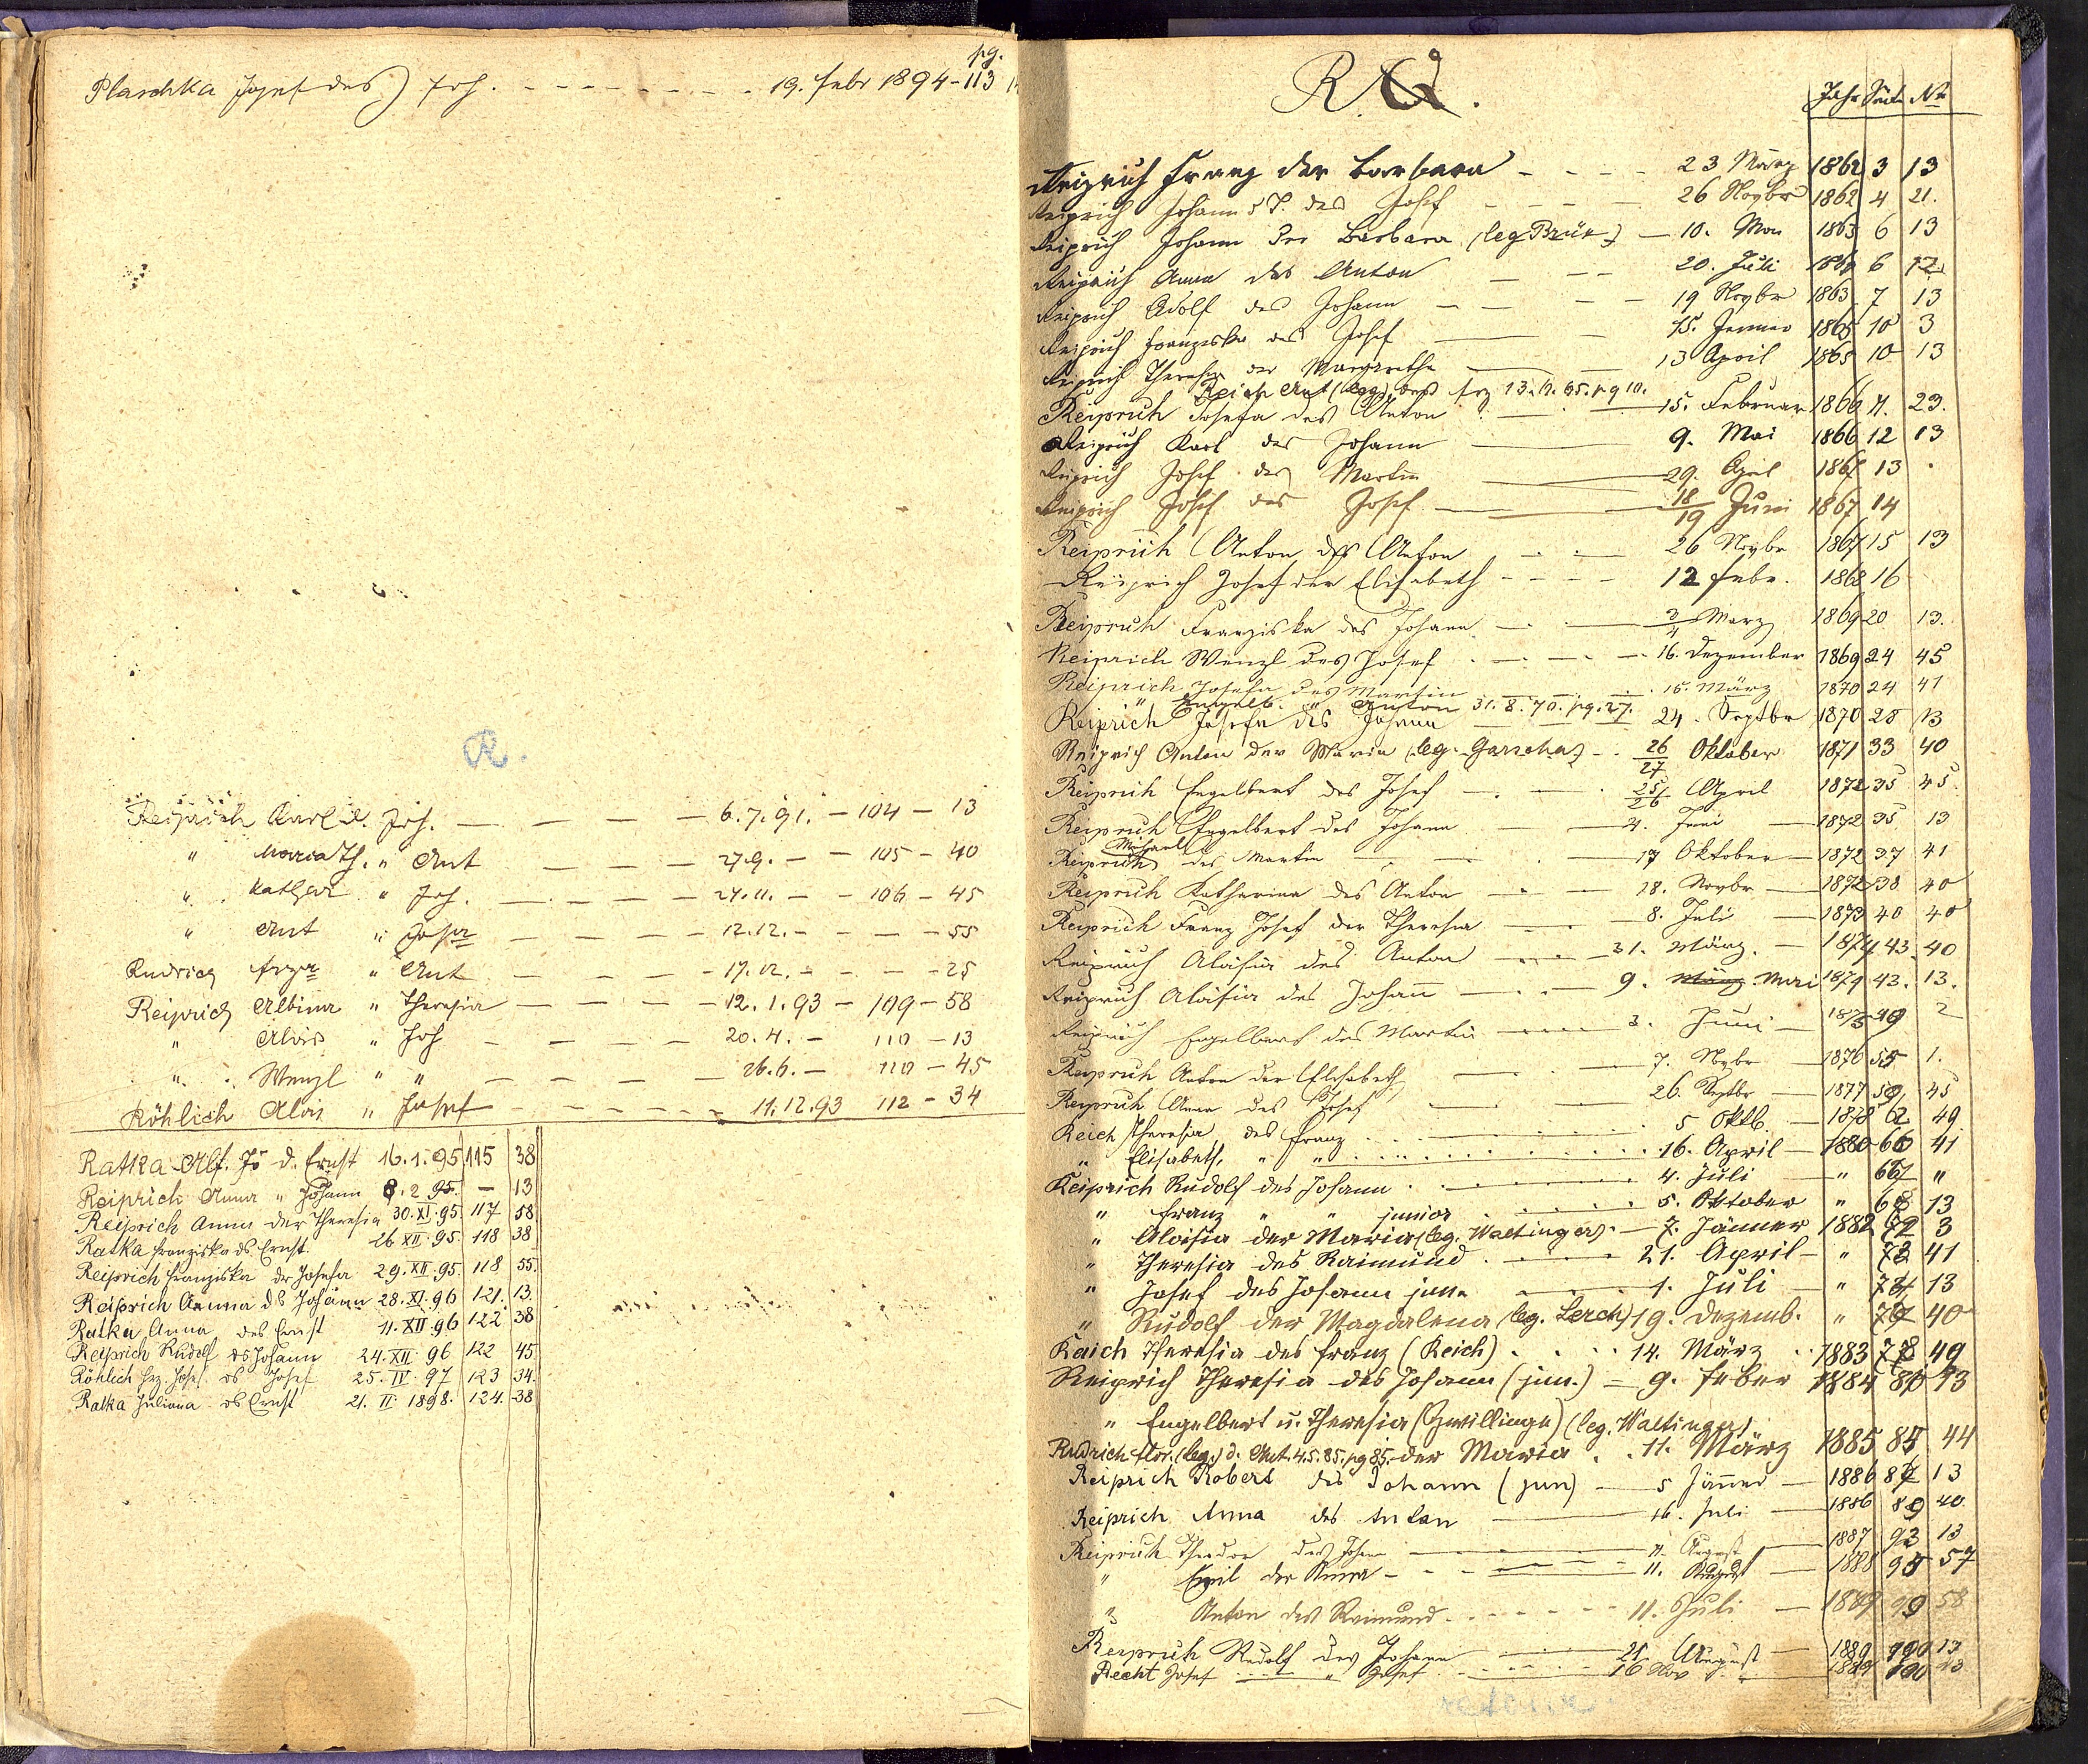 pg.
Plaschka Josef des Joh. 19. Febr 1894 - 113
R.
Reiprich Karl d. Joh. 6.7.91. - 104 - 13
" Maria Th. " Ant 27.9. - 105 - 40
" Kathar " Joh. 24.11. - 106 - 45
" Ant " Josefa 12.12. - - 55
Rudrich Frz " Ant - 25
Reiprich Albina " Theresia 12.1.93 - 109 - 58
" Alois " Joh 20.4. - 110 - 13
" Wenzl " " 26.6. - 110 - 45
Röhlich Alois " Josef 11.12.93 112 - 34
Ratka Alf. Jo d. Ernst 16.1.95 115 38
Reiprich Anna " Johann 8.2.95. - 13
Reiprich Anna der Theresia 30.XI.95 117 58
Ratka Franziska ds Ernst. 26.XII.95. 118 38
Reiprich Franziska dr Josefa 29.XII.95. 118 55.
Reiprich Anna ds Johann 28.XI.96 121. 13.
Ratka Anna des Ernst 11.XII.96 122 38
Reiprich Rudolf ds Johann 24.XII.96 122 45
Röhlich Frz. Josef ds Josef 25.IV.97 123 34.
Ratka Juliana ds Ernst 21.II.1898. 124. 38
R.
Jahr Seite No
Reiprich Franz der Barbara 23 März 1862 3 13
Reiprich Johann des Josef 26 Novbr 1862 4 21.
Reiprich Johann der Barbara (leg 10. Mai 1863 6 13
Reiprich Anna des Anton 20. Juli 6 12
Reiprich Adolf des Johann 19 Novbr 1863 7 13
Reiprich Franziska des Josef 15. Jenner 1865 10 3
Reiprich Theresia der Margarethe 13 April 1865 10 13
Reich Ant (leg) des Frz pg 10.
Reiprich Josefa des Anton 15. Februar 1866 11. 23.
Reiprich Karl des Johann 9. Mai 1866 12 13
Reiprich Josef des Martin 29. April 1867 13
Reiprich Josef des Josef 18/19 Juni 1867 14
Reiprich Anton des Anton 26 Novbr 1867 15 13
Reiprich Josef der Elisabeth 12 Febr. 1868 16
Reiprich Franziska des Johann 3/4 März 1869 20 13.
Reiprich Wenzl des Josef 16. Dezember 1869 24 45
Reiprich Josefa des Martin 15. März 1870 24 41
" Engelb. " Anton 31.8.70. pg. 27.
Reiprich Josefa des Johann 24. Septbr 1870 28 13
Reiprich Anton der Maria (leg. Garscha) 26/27 Oktober 1871 33 40
Reiprich Engelbert des Josef 25/26 April 1872 35 45.
Reiprich Engelbert des Johann 4. Juni 1872 35 13
Reiprich Michael des Martin 17 Oktober 1872 37 41
Reiprich Katharina des Anton 18. Novbr 1872 38 40
Reiprich Franz Josef der Theresia 8. Juli 1873 40 40
Reiprich Aloisia des Anton 31. März. 1874 43 40
Reiprich Aloisia des Johann 9. März Mai 1874 43. 13.
Reiprich Engelbert des Martin 3. Juni 1875 49 2
Reiprich Anton der Elisabeth 7. Novbr 1876 55 1.
Reiprich Anna des Josef 26. Septbr 1877 59 45
Reich Theresia des Franz 5 Oktb. 1878 62 49
" Elisabeth " " 16. April 1880 66 41
Reiprich Rudolf des Johann 4. Juli " 67 "
" Franz " " junior 5. Oktober " 68 13
" Aloisia der Maria (leg. Waltinger) 7. Jänner 1882 72 3
" Theresia des Raimund 21. April " 73 41
" Josef des Johann jun. 1. Juli " 74 13
" Rudolf der Magdalena (leg. Lerch) 19. Dezemb. " 77 40
Raich Theresia des Franz (Reich) 14. März 1883 78 49
Reiprich Theresia des Johann (jun.) 9. Feber 1884 80 13
" Engelbert u. Theresia (Zwillinge) (leg. Waltinger)
Rudrich Flor. (leg.) d. Ant. 4.5.85. pg 85. der Maria 11. März 1885 85 44
Reiprich Robert des Johann (jun) 5 Jänner 1886 87 13
Reiprich Anna des Anton 16. Juli 1886 89 40
Reiprich Theodor des Johann 11. August 1887 93 13
" Emil der Anna 11. August 1888 95 57
" Anton des Reimund 11. Juli 1889 99 58
Reiprich Rudolf des Johann 21 August 1889 100 13
Recht Josef " Josef 16 Nov 1889 100
retour